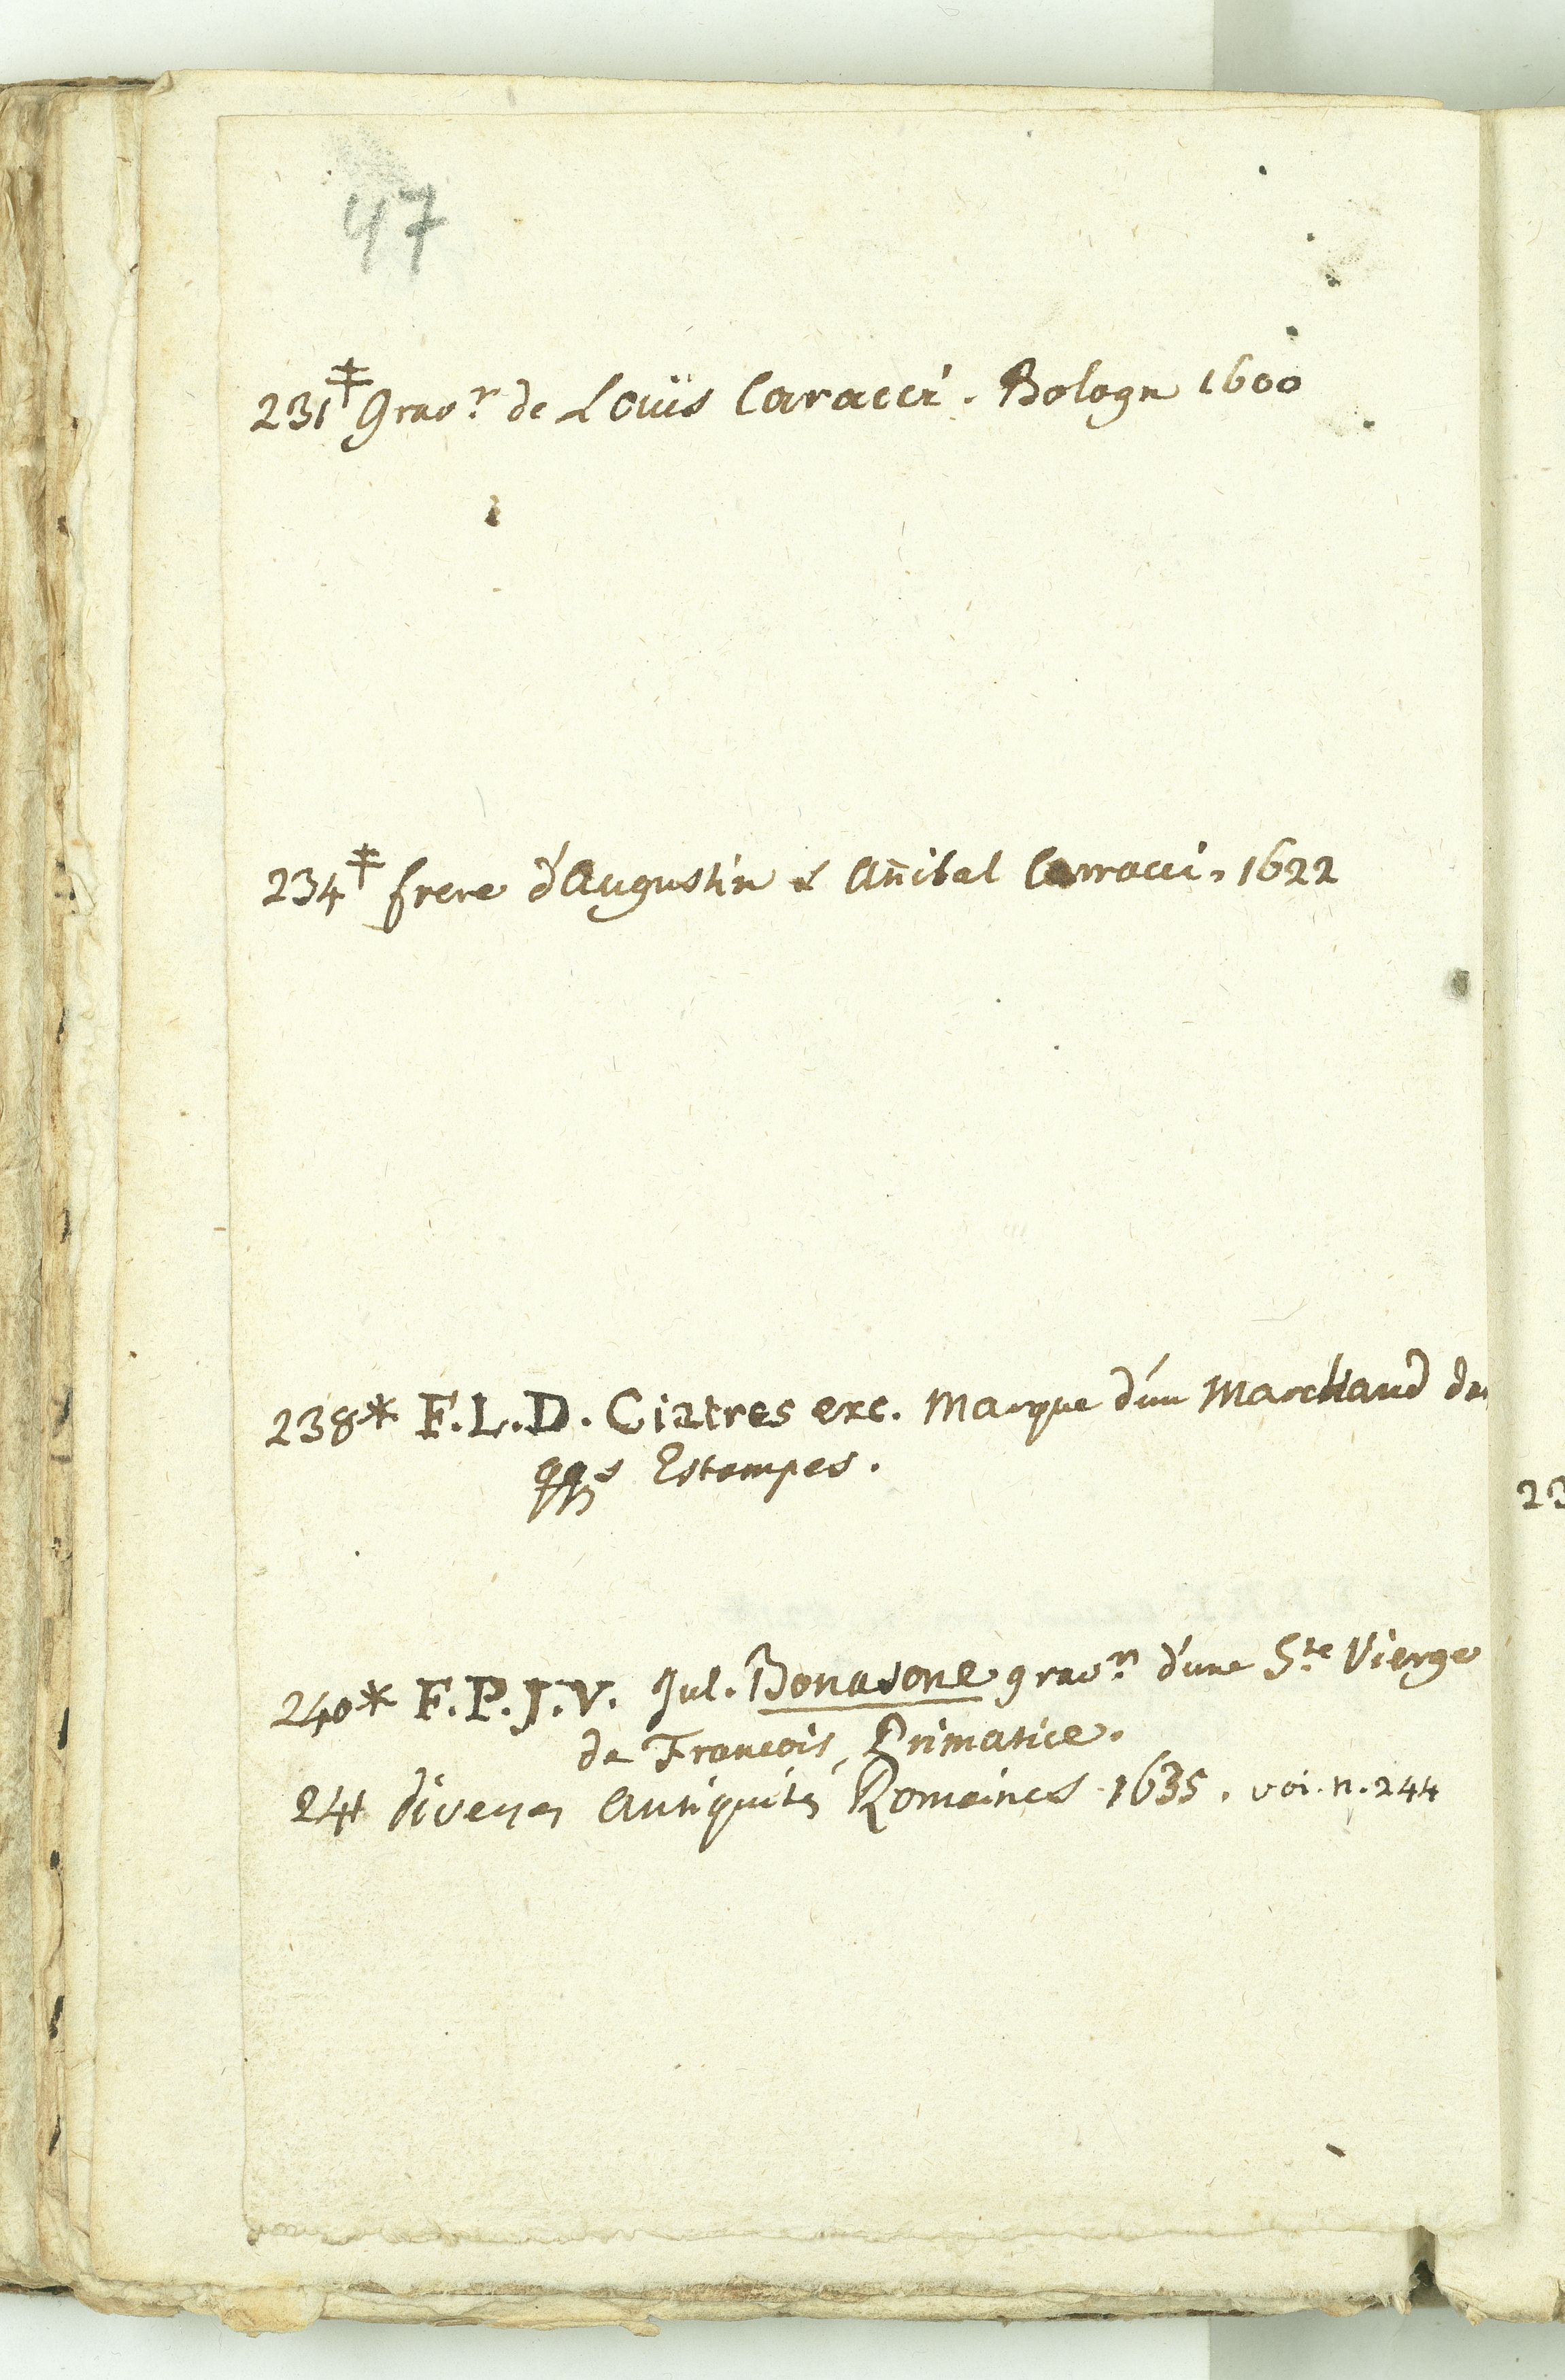 47
231‡ Grav.r de Louïs Caracci. Bologn 1600
234‡ frere d'Augustin & Anibal Carracci. 1622
238* F.L.D. Ciatres exc. Marque d'un Marchand de
qqs Estampes.
240* F.P.J.V. Jul. Bonasone grav.n d'une S.te Vierge
de François Primatice.
diverses Antiquités Romaines 1635. voi. n. 244
23